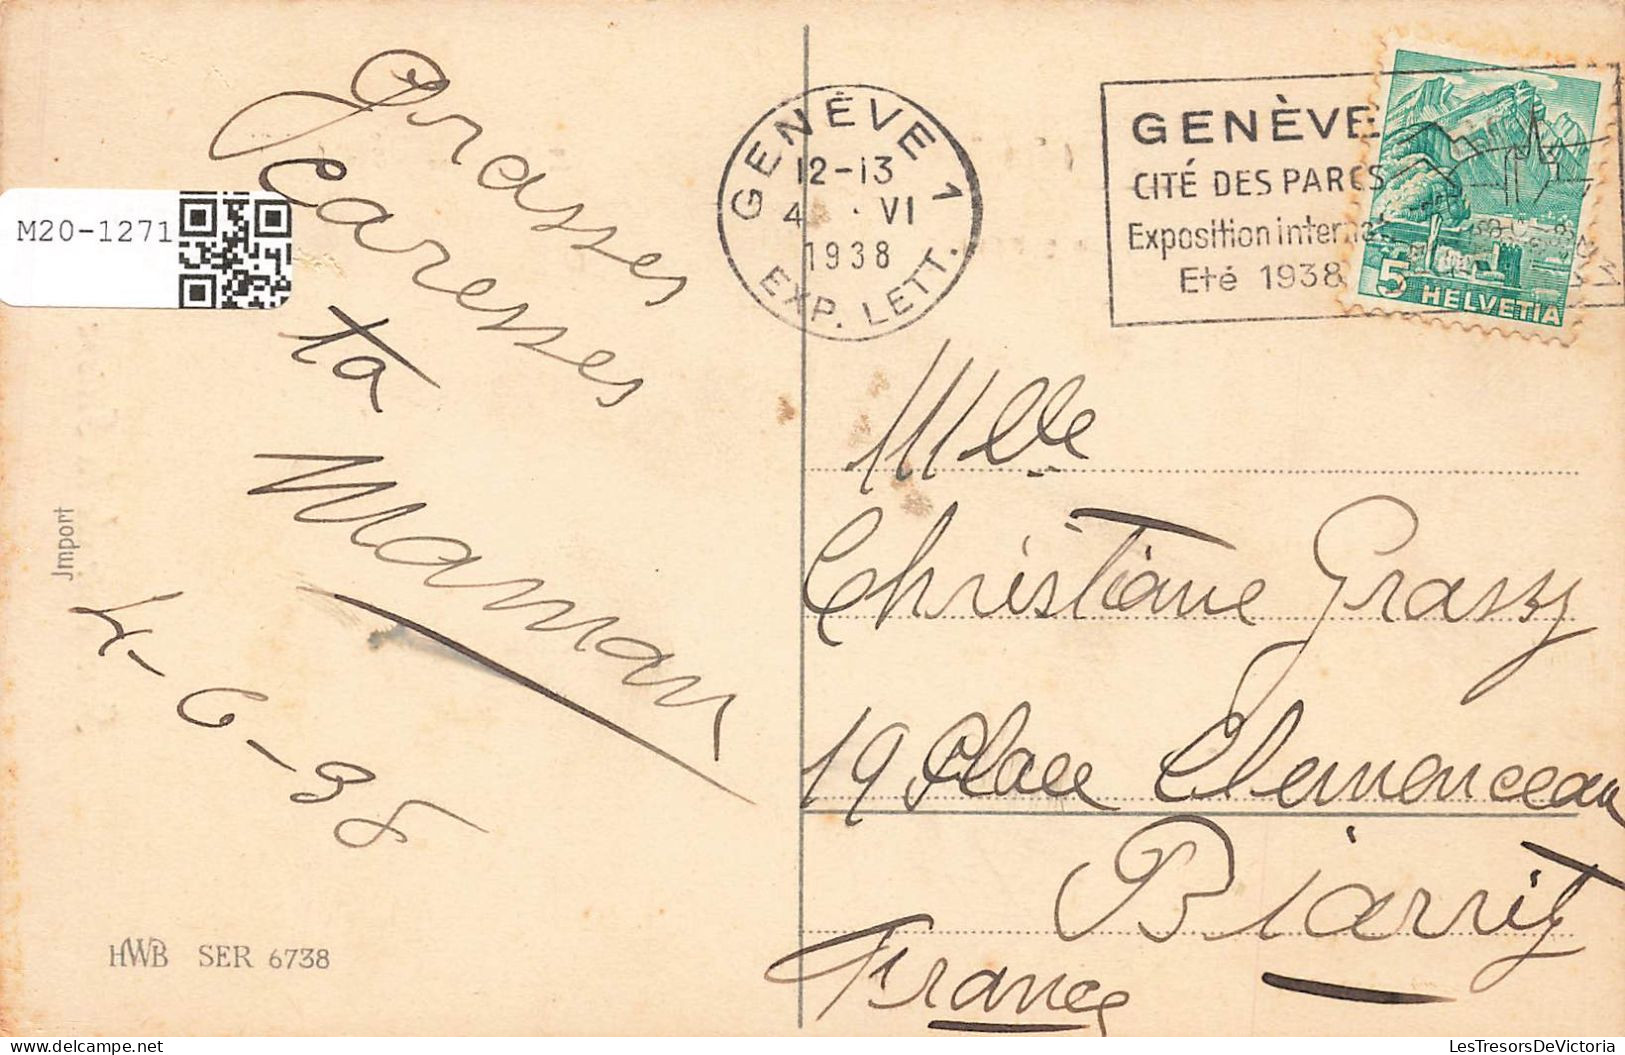 Grasses
caresses
ta
Maman
4-6-38
M20-1271
Jmport
HWB SER 6738
GENÈVE 1
12-13
4 · VI
1938
EXP. LETT.
GENÈVE
CITÉ DES PARCS
Exposition interna
Eté 1938
5 HELVETIA
Mlle
Christiane Grassy
19 Place Clemenceau
Biarritz
France
www.delcampe.net
LesTresorsDeVictoria